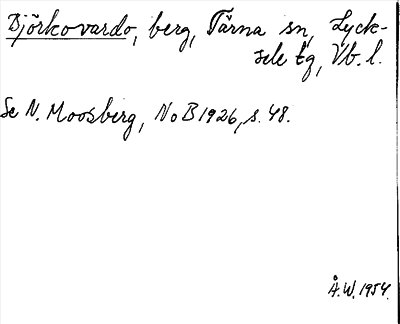 Björkovardo, berg, Tärna sn, Lyck-
sele tg, Vb. l.
Se N. Moosberg, NoB 1926, s. 48.
Å.W. 1954.